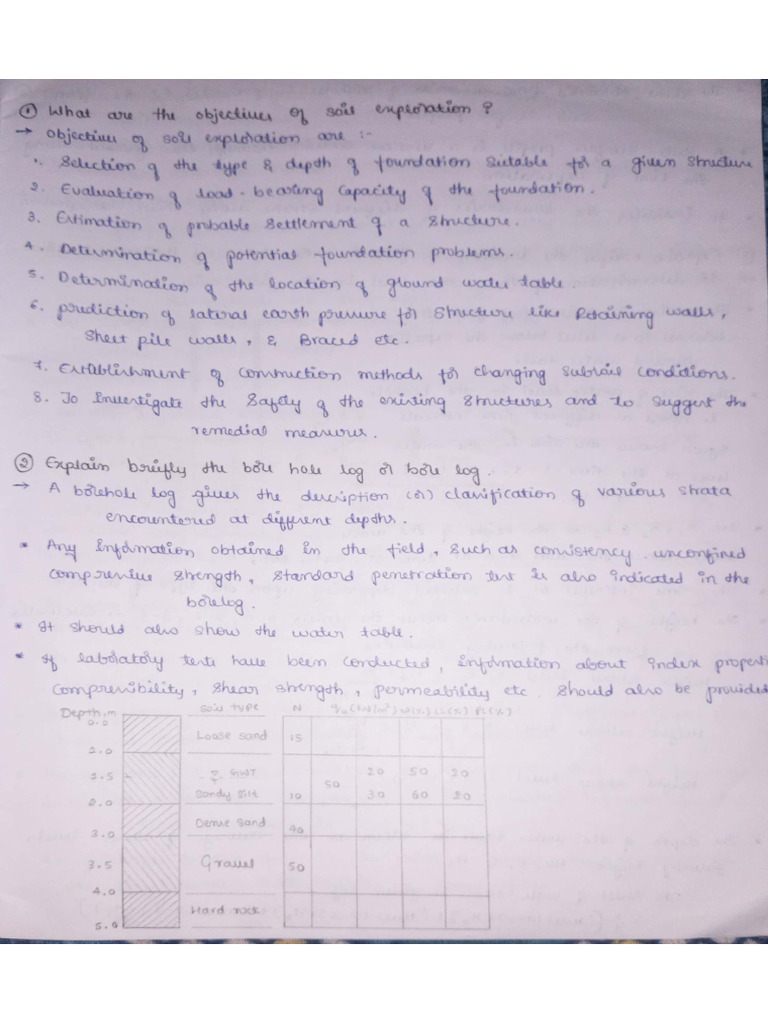 ① What are the objectives of soil exploration ?
→ Objectives of soil exploration are :-
1. Selection of the type & depth of foundation suitable for a given structure
2. Evaluation of load - bearing capacity of the foundation.
3. Estimation of probable settlement of a structure.
4. Determination of potential foundation problems.
5. Determination of the location of ground water table.
6. prediction of lateral earth pressure for structure like Retaining walls,
Sheet pile walls, & Braced etc.
7. Establishment of construction methods for changing subsoil conditions.
8. To investigate the safety of the existing structures and to suggest the
remedial measures.
② Explain briefly the bore hole log or bore log.
→ A borehole log gives the description (or) classification of various strata
encountered at different depths.
* Any information obtained in the field, such as consistency unconfined
compressive strength, standard penetration test is also indicated in the
borelog.
* It should also show the water table.
* If laboratory tests have been conducted, information about index properti
compressibility, shear strength, permeability etc. should also be provided
Depth, m Soil type N qu (kN/m²) w(%) LL(%) PL(%)
0.0
Loose sand 15
2.0
2.5 GWT 50 20 50 20
2.0 Sandy silt 10 30 60 20
Dense sand 40
3.0
3.5 Gravel 50
4.0
Hard rock
5.0